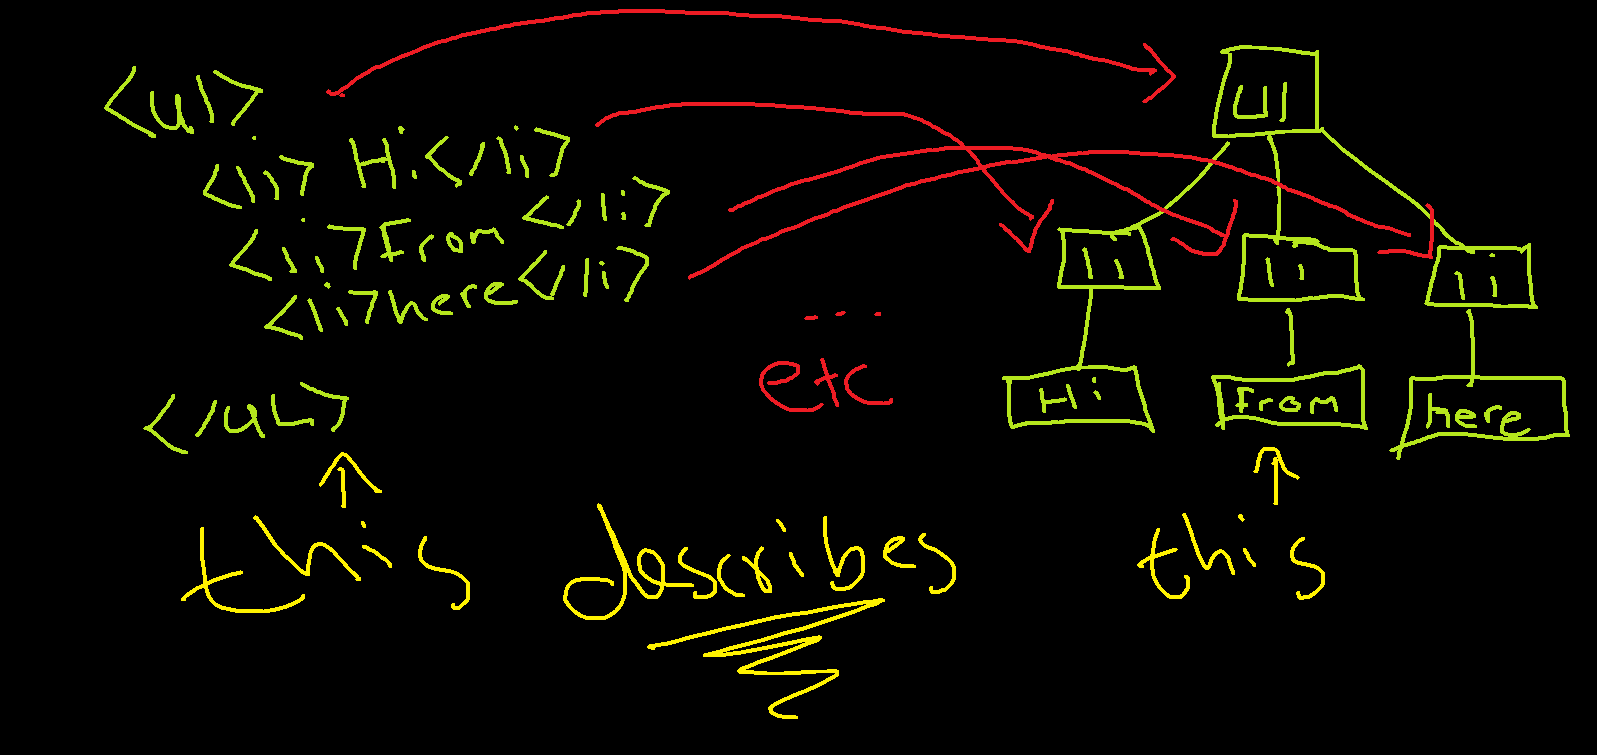 <ul>
<li> Hi</li>
<li>From</li>
<li>here</li>
</uL>
...
etc
ul
li li li
Hi From here
this describes this